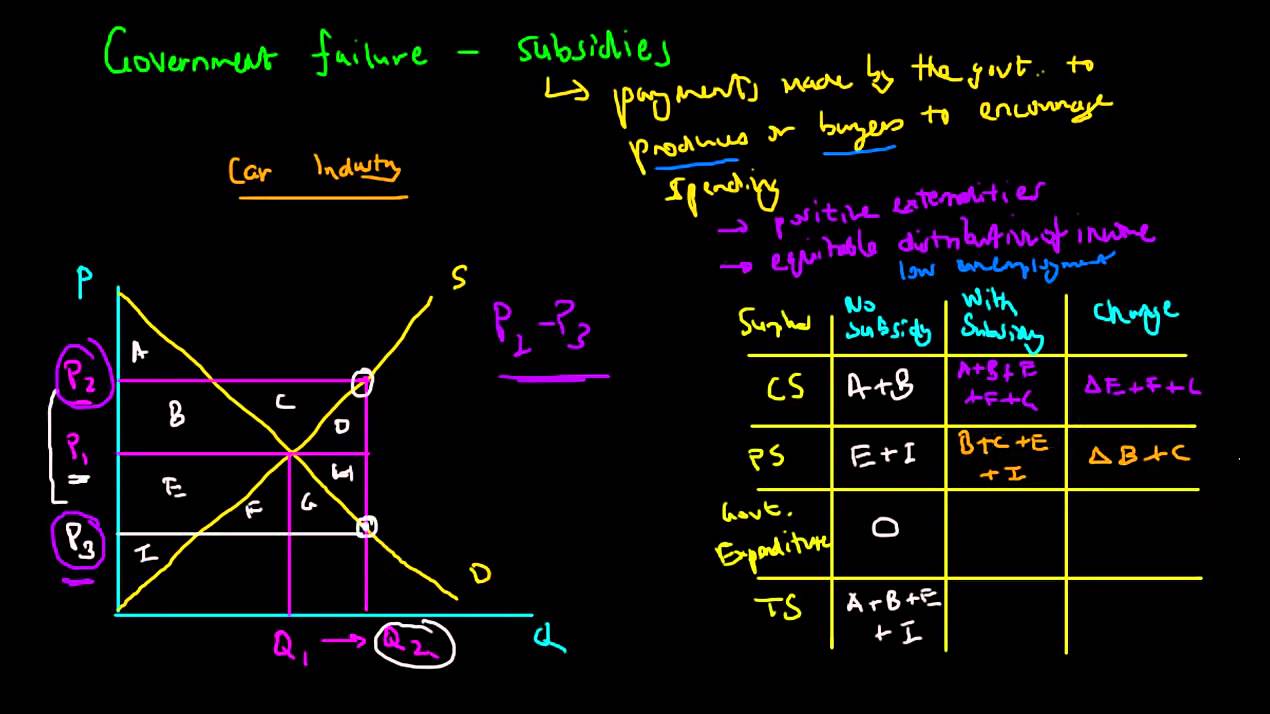 Government failure - subsidies
↳ payments made by the govt. to
produces or buyers to encourage
spending
Car Industry
→ positive externalities
→ equitable distribution of income
low unemployment
P
S
P2 - P3
A
P2
B
C
D
P1
E
F
G
H
P3
I
D
Q1 → Q2
Q
No Subsidy
With Subsidy
Change
CS
A+B
A+B+E
+F+G
ΔE+F+G
PS
E+I
B+C+E
+I
ΔB+C
Govt.
Expenditure
O
TS
A+B+E
+I